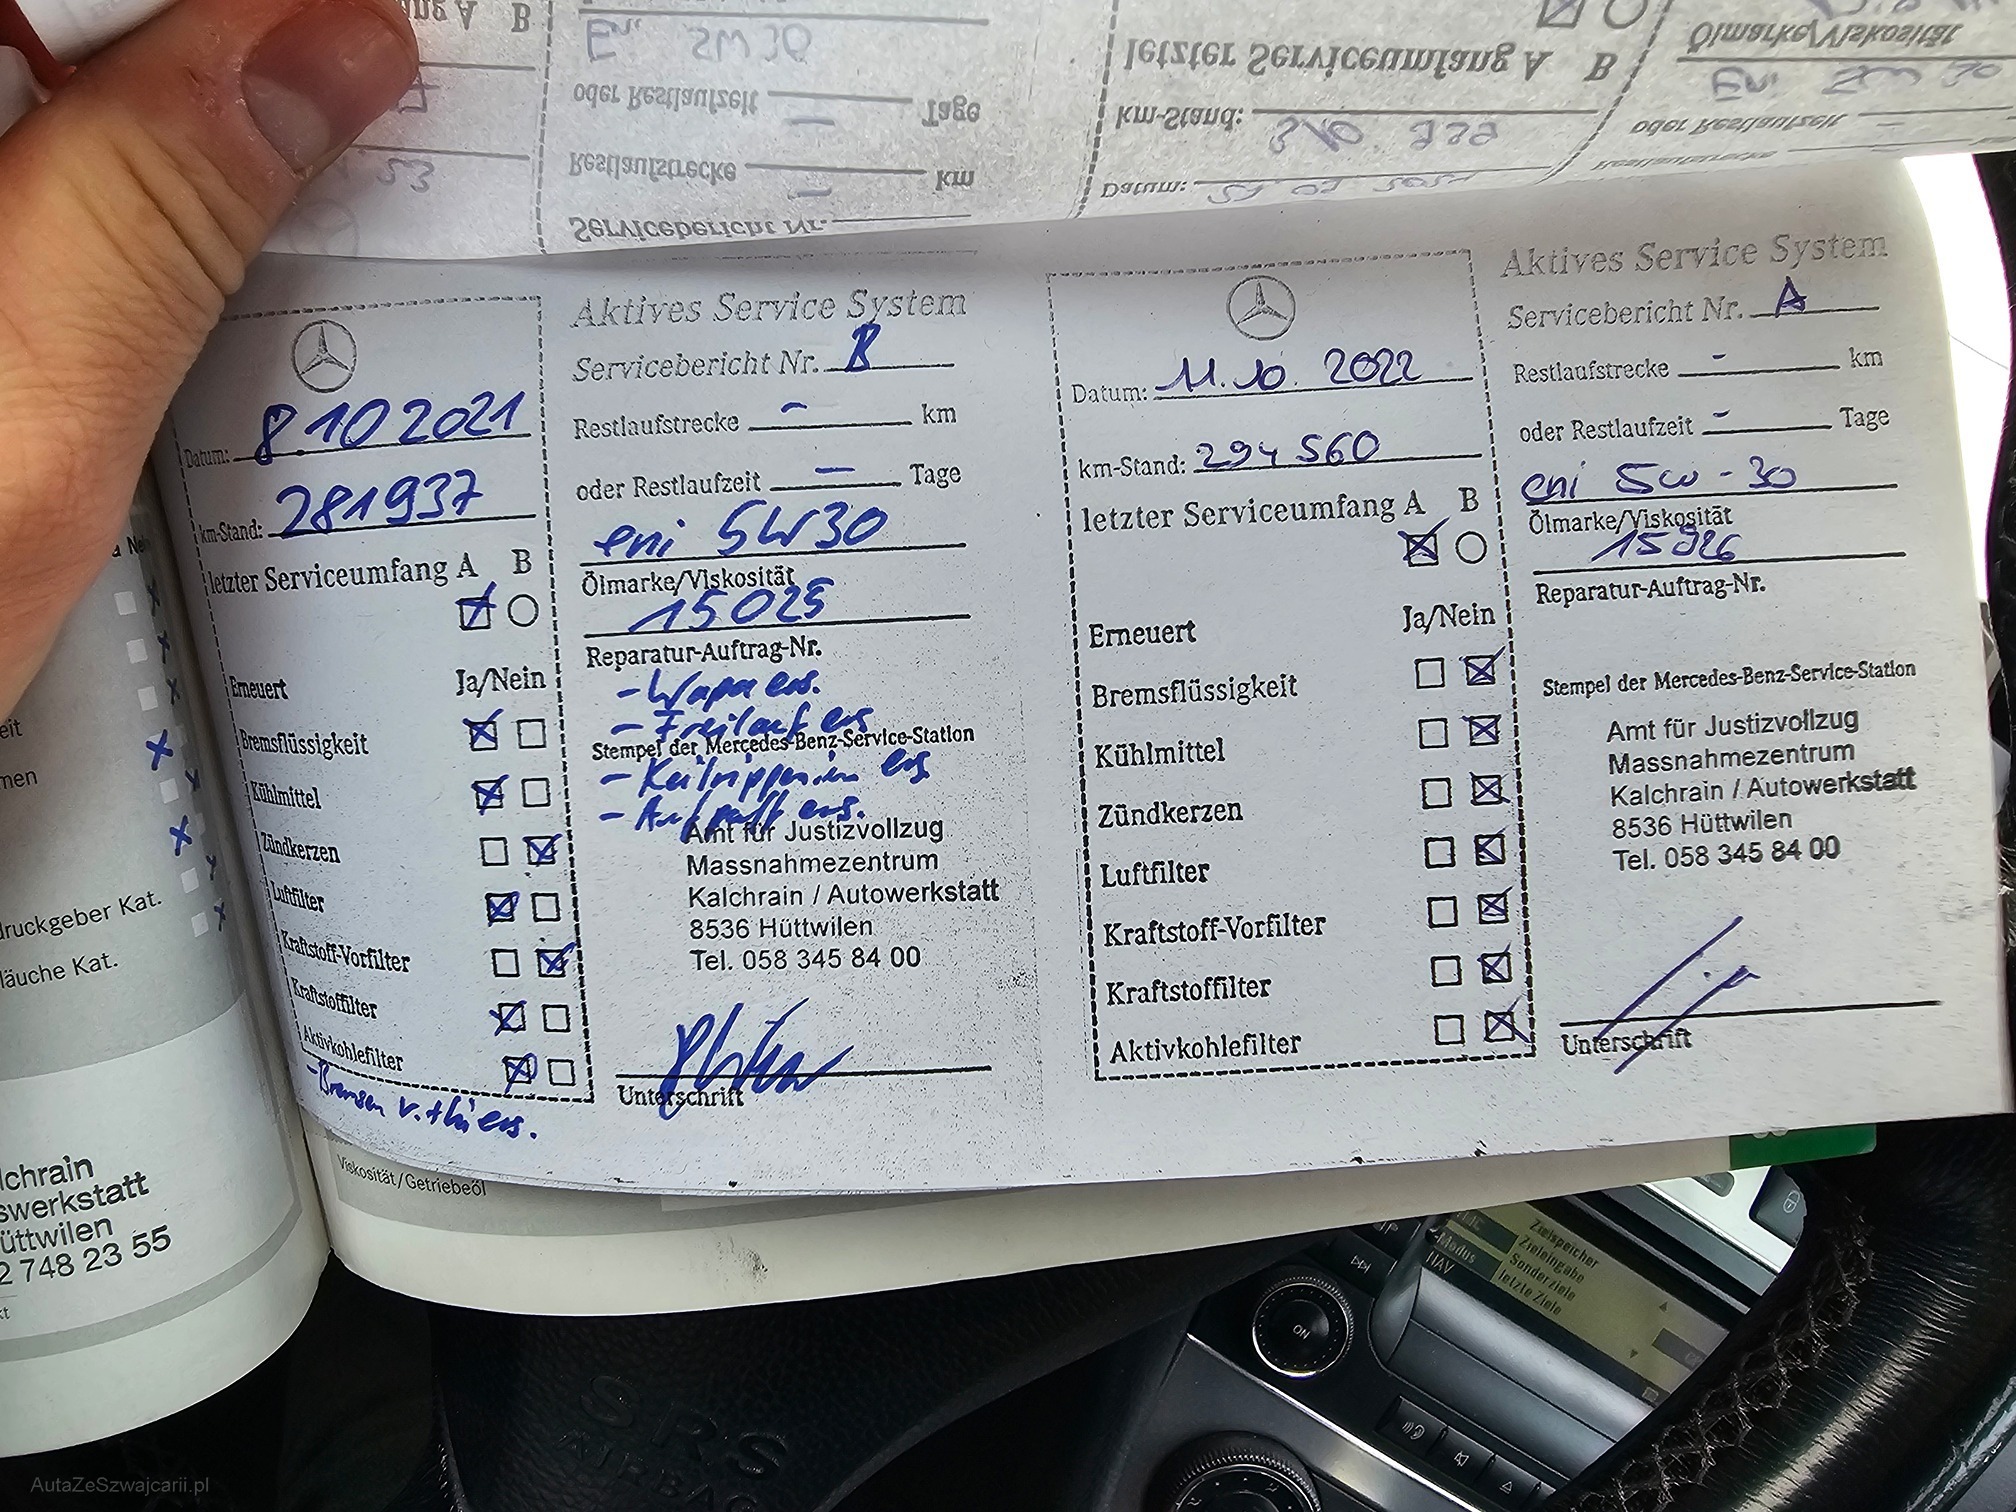 ng A B
letzter Serviceumfang A B
Ölmarke/Viskosität
5W 30
oder Restlaufzeit Tage
km-Stand:
oder Restlaufzeit
23
Restlaufstrecke km
Datum:
Restlaufstrecke
Servicebericht Nr.
Datum: 8 10 2021
km-Stand: 281937
letzter Serviceumfang A B
Erneuert Ja/Nein
Bremsflüssigkeit
Kühlmittel
Zündkerzen
Luftfilter
Kraftstoff-Vorfilter
Kraftstoffilter
Aktivkohlefilter
- Bremsen v. + h ers.
Aktives Service System
Servicebericht Nr. B
Restlaufstrecke - km
oder Restlaufzeit - Tage
eni 5W30
Ölmarke/Viskosität
15025
Reparatur-Auftrag-Nr.
- Wapu ers.
- Freilauf ers
Stempel der Mercedes-Benz-Service-Station
- Keilrippenriem ers
- ers.
Amt für Justizvollzug
Massnahmezentrum
Kalchrain / Autowerkstatt
8536 Hüttwilen
Tel. 058 345 84 00
Unterschrift
Datum: 11.10.2022
km-Stand: 294 560
letzter Serviceumfang A B
Erneuert Ja/Nein
Bremsflüssigkeit
Kühlmittel
Zündkerzen
Luftfilter
Kraftstoff-Vorfilter
Kraftstoffilter
Aktivkohlefilter
Aktives Service System
Servicebericht Nr. A
Restlaufstrecke - km
oder Restlaufzeit - Tage
eni 5w-30
Ölmarke/Viskosität
15926
Reparatur-Auftrag-Nr.
Stempel der Mercedes-Benz-Service-Station
Amt für Justizvollzug
Massnahmezentrum
Kalchrain / Autowerkstatt
8536 Hüttwilen
Tel. 058 345 84 00
Unterschrift
eit
men
druckgeber Kat.
läuche Kat.
lchrain
swerkstatt
üttwilen
2 748 23 55
Viskosität/Getriebeöl
Zielspeicher
Zieleingabe
Sonderziele
letzte Ziele
-Modus
NAV
ON
SRS
AIRBAG
AutaZeSzwajcarii.pl